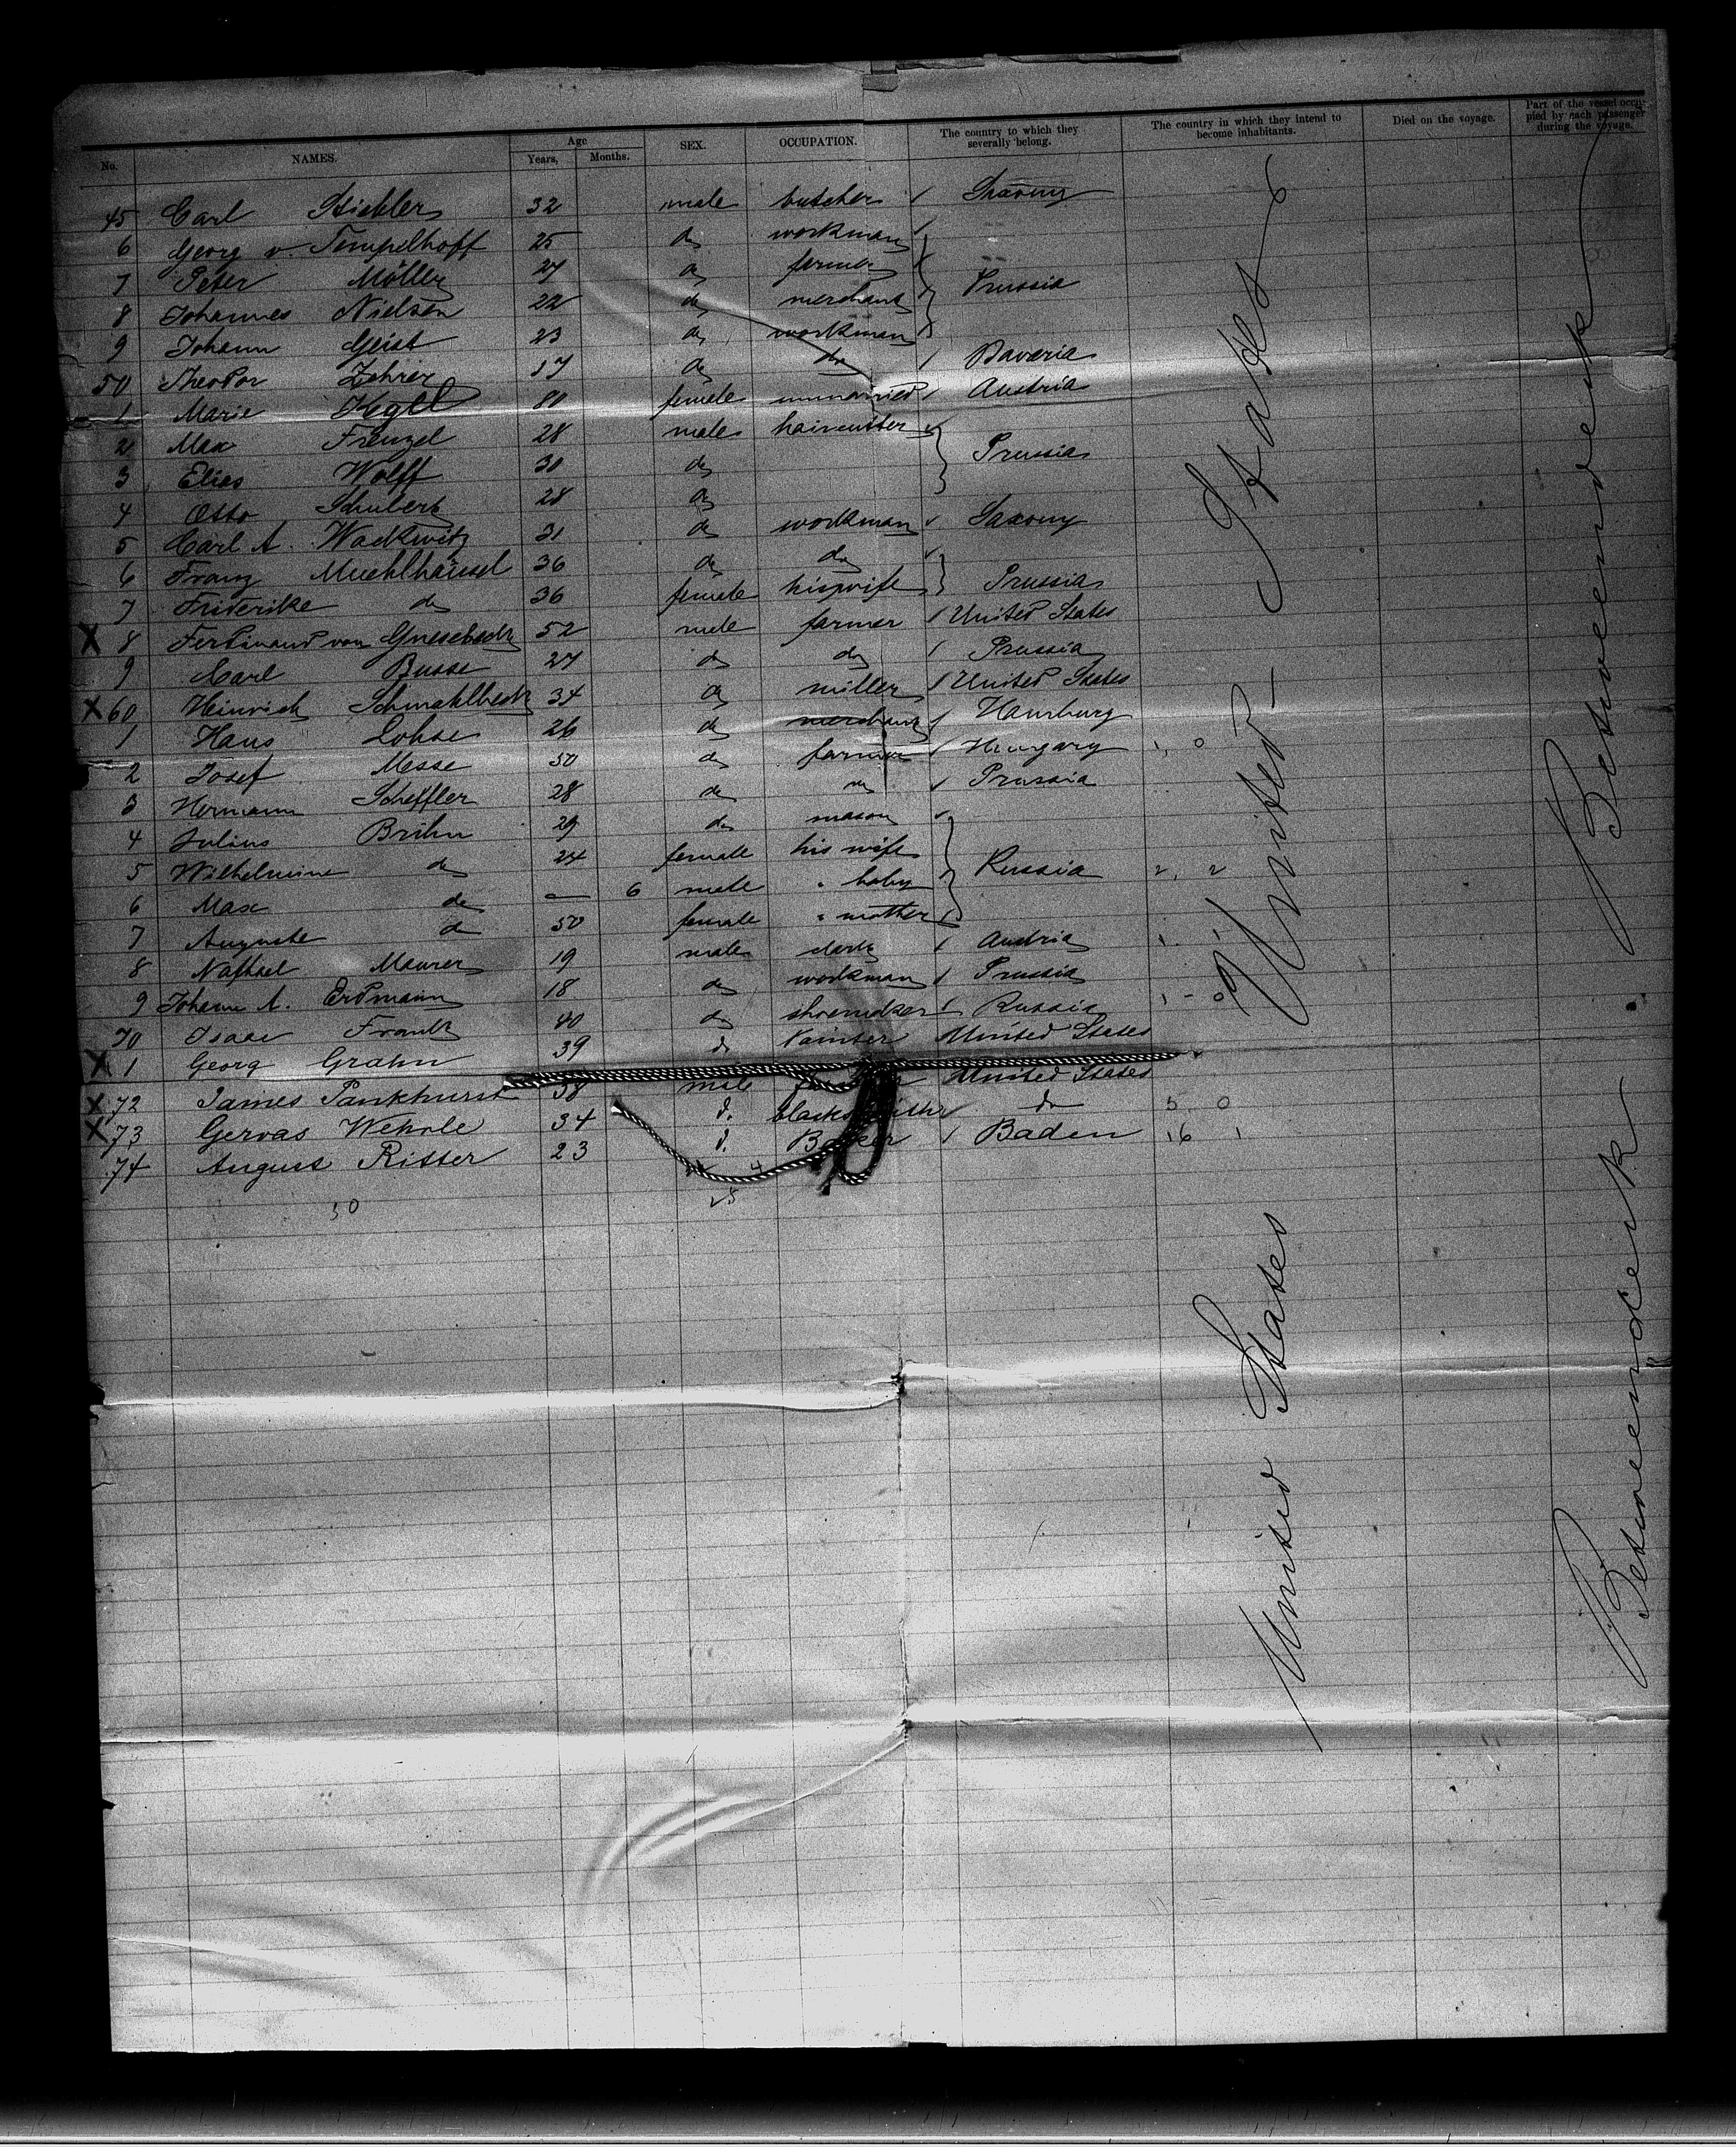 No. NAMES. Age Years, Months. SEX. OCCUPATION. The country to which they severally belong. The country in which they intend to become inhabitants. Died on the voyage. Part of the vessel occupied by each passenger during the voyage.
45 Carl 32 male butcher Saxony
6 Georg v. Tempelhoff 25 do workman
7 Peter Möller 27 do farmer Prussia
8 Johannes Nielsen 22 do merchant
9 Johann Geist 23 do workman
50 Theodor Zehrer 17 do do Bavaria
1 Marie Kegel unmarried Austria female
2 Max Frenzel 28 male haircutter
3 Elias Wolff 30 do Prussia
4 Otto Schubert 28 do
5 Carl A. Wackwitz 31 do workman Saxony
6 Franz Muehlhäusel 36 do do
7 Friderike do 36 female his wife Prussia
X 8 Ferdinand von 52 male farmer United States
9 Carl Busse 27 do do Prussia
X 60 Heinrich Schmahlbeck 34 do miller United States
1 Hans Lohse 26 do merchant Hamburg
2 Josef Messe 50 do farmer Hungary 1, 0
3 Hermann Scheffler 28 do do Prussia
4 Julius Brihn 29 do mason
5 Wilhelmine do 24 female his wife Russia 2, 2
6 Max do — 6 male " baby
7 Auguste do 50 female " mother
8 Naftael Maurer 19 male clerk Austria 1
9 Johann A. Erdmann 18 do workman Prussia
70 Isaac Frank 40 do shoemaker Russia 1 - 0
X 1 Georg Grahn 39 do Painter United States
X 72 James Pankhurst 38 male United States
X 73 Gervas Wehrle 34 d. blacksmith do 5 0
74 August Ritter 23 d. Baker Baden 16 1
30 25
United States
Betweendeck
United States
Betweendeck